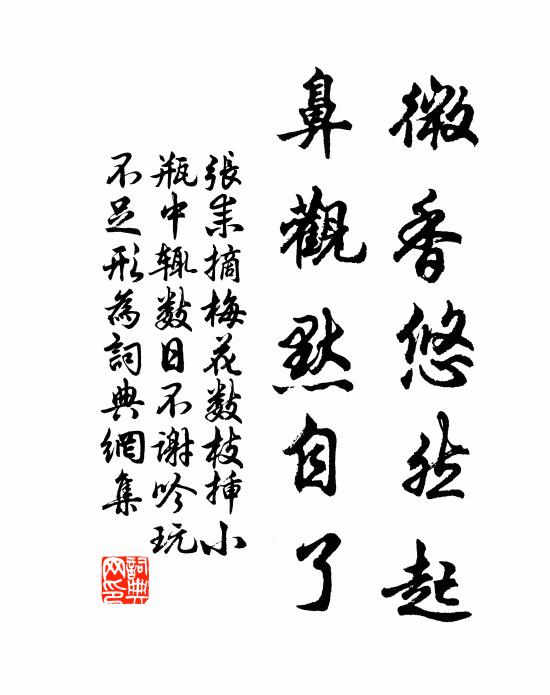 微香悠然起
鼻觀默自了
張耒摘梅花數枝揷小
瓶中輙數日不謝吟玩
不足形為詞典網集
詞典
网印